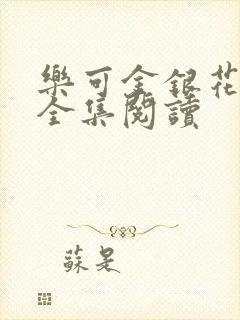 樂可金銀花
全集閱讀
蘇是